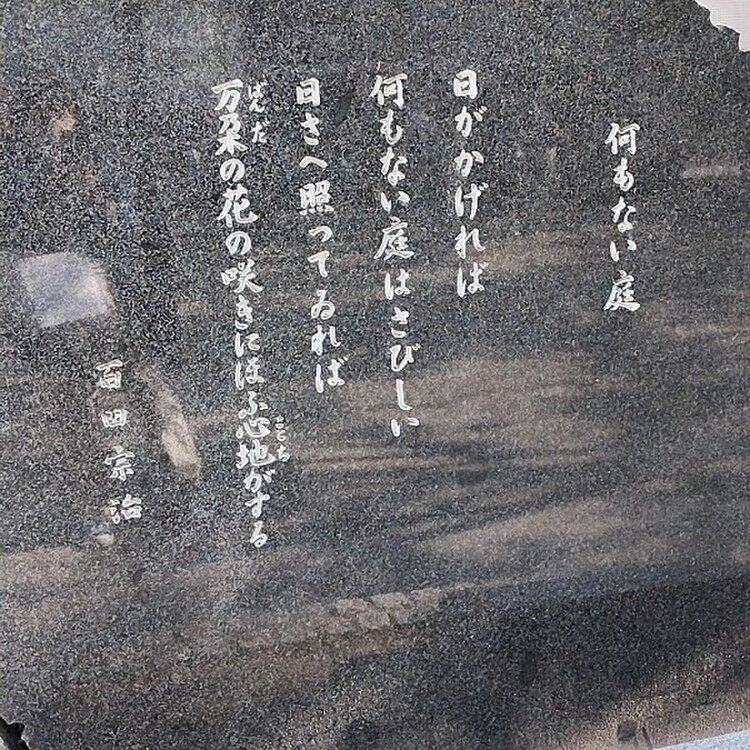 何もない庭
日がかげれば
何もない庭はさびしい
日さへ照ってゐれば
万朶の花の咲きにほふ心地がする
ばんだ
ここち
百田宗治